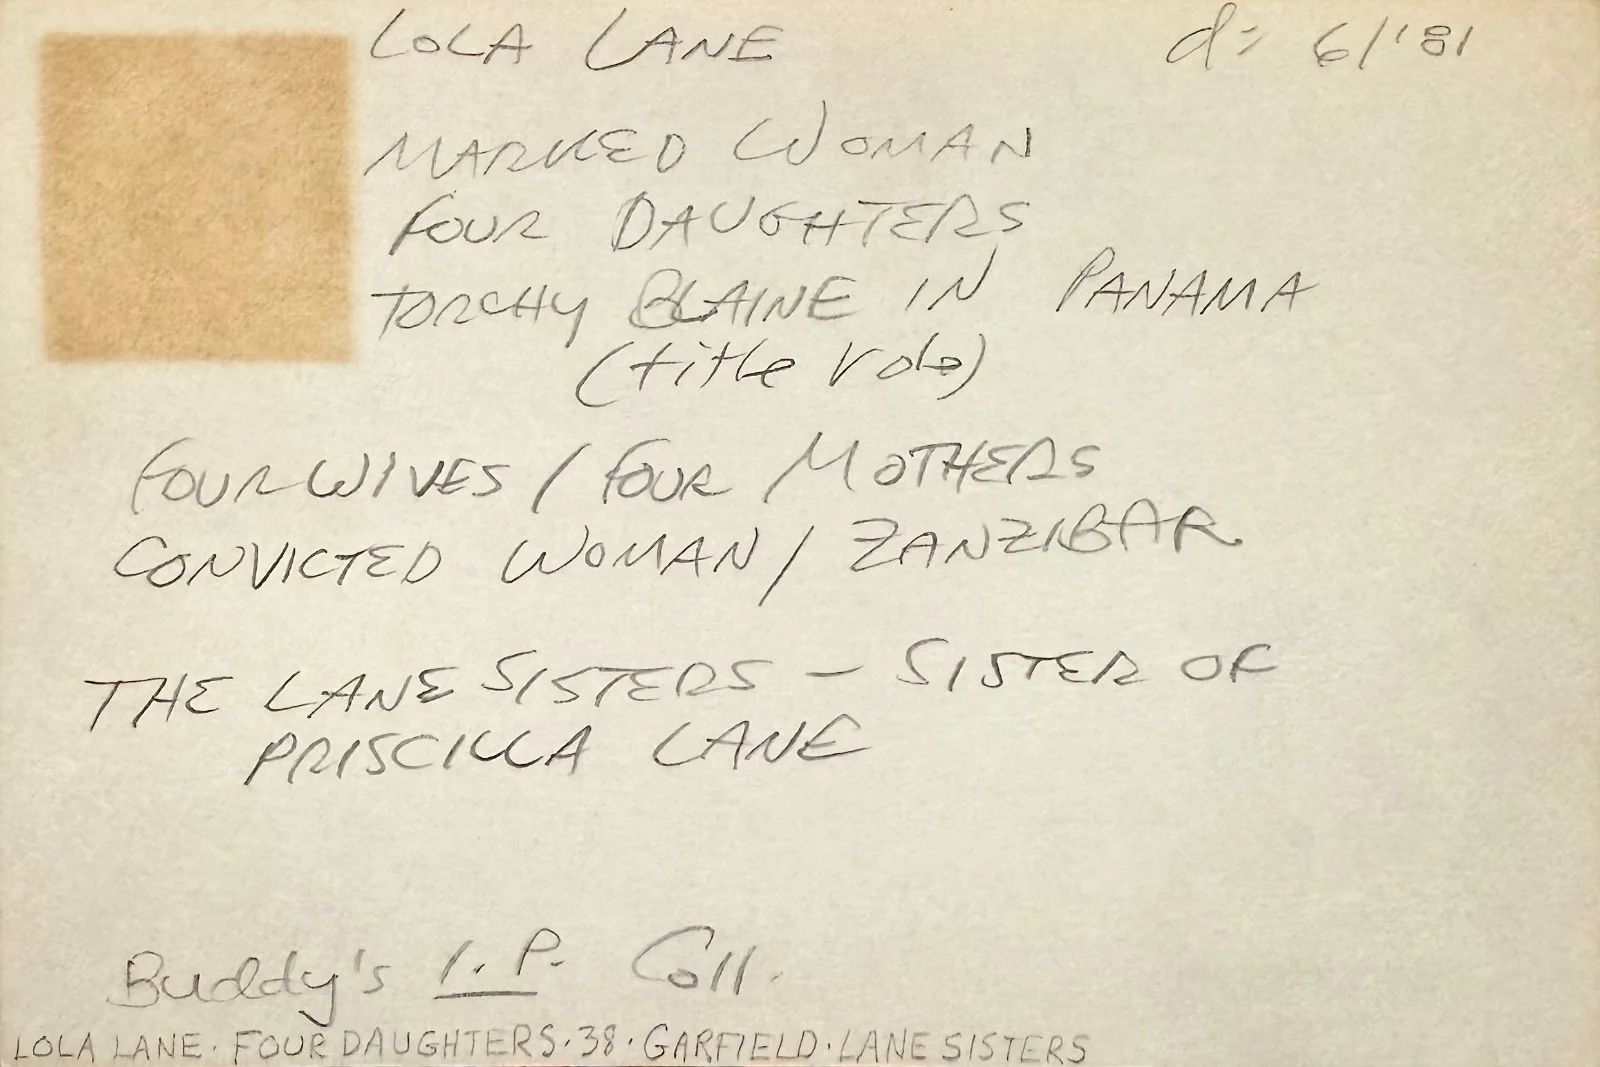 LOLA LANE d: 6/'81
MARKED WOMAN
FOUR DAUGHTERS
TORCHY BLAINE IN PANAMA
(title role)
FOUR WIVES / FOUR MOTHERS
CONVICTED WOMAN / ZANZIBAR
THE LANE SISTERS – SISTER OF
PRISCILLA LANE
Buddy's I.P. Coll.
LOLA LANE · FOUR DAUGHTERS · 38 · GARFIELD · LANE SISTERS